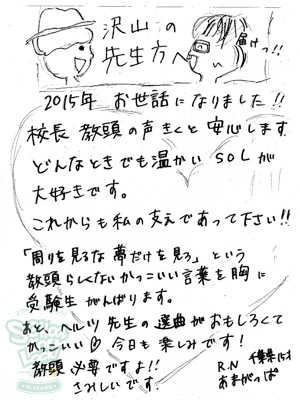 沢山の
先生方へ
届けっ!!
2015年 お世話になりました!!
校長 教頭の声きくと安心します
どんなときでも温かい SOLが
大好きです。
これからも私の支えであって下さい!!
「周りを見るな夢だけを見ろ」という
教頭らしくないかっこいい言葉を胸に
受験生がんばります。
あと、ヘルツ先生の選曲がおもしろくて
かっこいい♡ 今日も楽しみです!
教頭必要ですよ!!
さみしいです。
R.N 千葉県15才
あまがっぱ